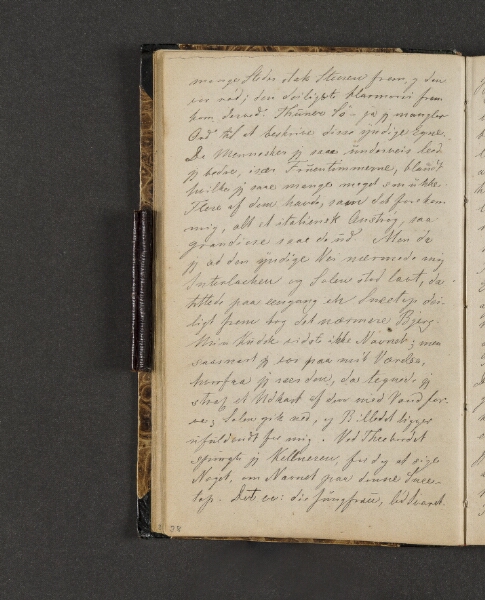 mange Steder stak Stenen frem, og den
er rød; den deiligste Harmoni frem
kom derved. Thuner Sö - ja jeg mangler
Ord til at beskrive disse yndige Egne.
De Mennesker jeg saae underveis leed
jeg bedre, især Fruentimmerne, blandt
hvilke jeg saae mange meget smukke.
Flere af dem havde, saae det forekom
mig, alt et italiensk Anstrøg, saa
grandiose saae de ud. Men da
jeg ad den yndige Vei nærmede mig
Interlacken og Solen stod lavt, da
tittede paa eengang en Sneetop dei-
ligt frem bag det nærmere Bjerg.
Min Kudsk vidste ikke Navnet; men
saasnart jeg var paa mit Værelse,
hvorfra jeg saae den, da tegnede jeg
strax et Udkast af den med Vand far-
ve; Solen gik ned, og Billedet ligger
ufuldendt for mig. Ved Theebordet
spurgte jeg Kellneren, for dog at sige
Noget, om Navnet paa denne Snee-
top. Det er: die Jungfrau, lød Svaret.
38